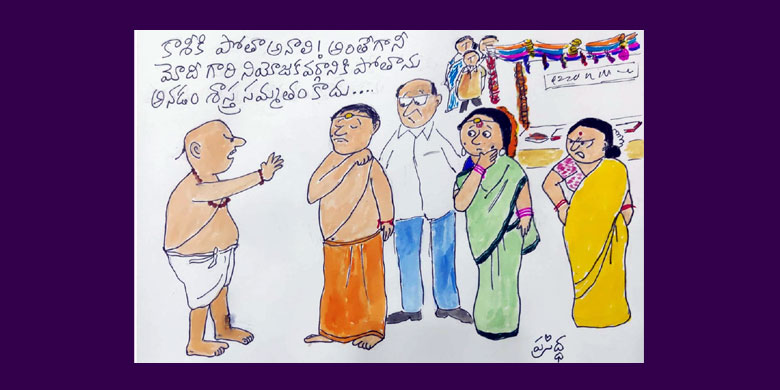 కాశీకి పోతా అనాలి! అంతేగానీ
మోదీ గారి నియోజకవర్గానికి పోతాను
అనడం శాస్త్ర సమ్మతం కాదు....
ప్రసిద్ధ